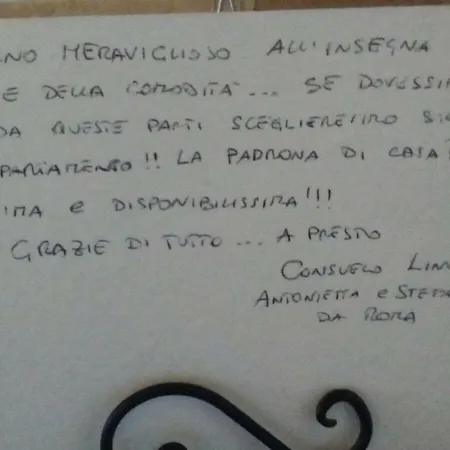 NO MERAVIGLIOSO ALL'INSEGNA
E DELLA COMODITÀ... SE DOVESSIM
DA QUESTE PARTI SCEGLIEREMMO SIC
PARTAMENTO!! LA PADRONA DI CASA
IMA E DISPONIBILISSIMA!!!
GRAZIE DI TUTTO... A PRESTO
CONSUELO LIN
ANTONIETTA E STEFA
DA ROMA